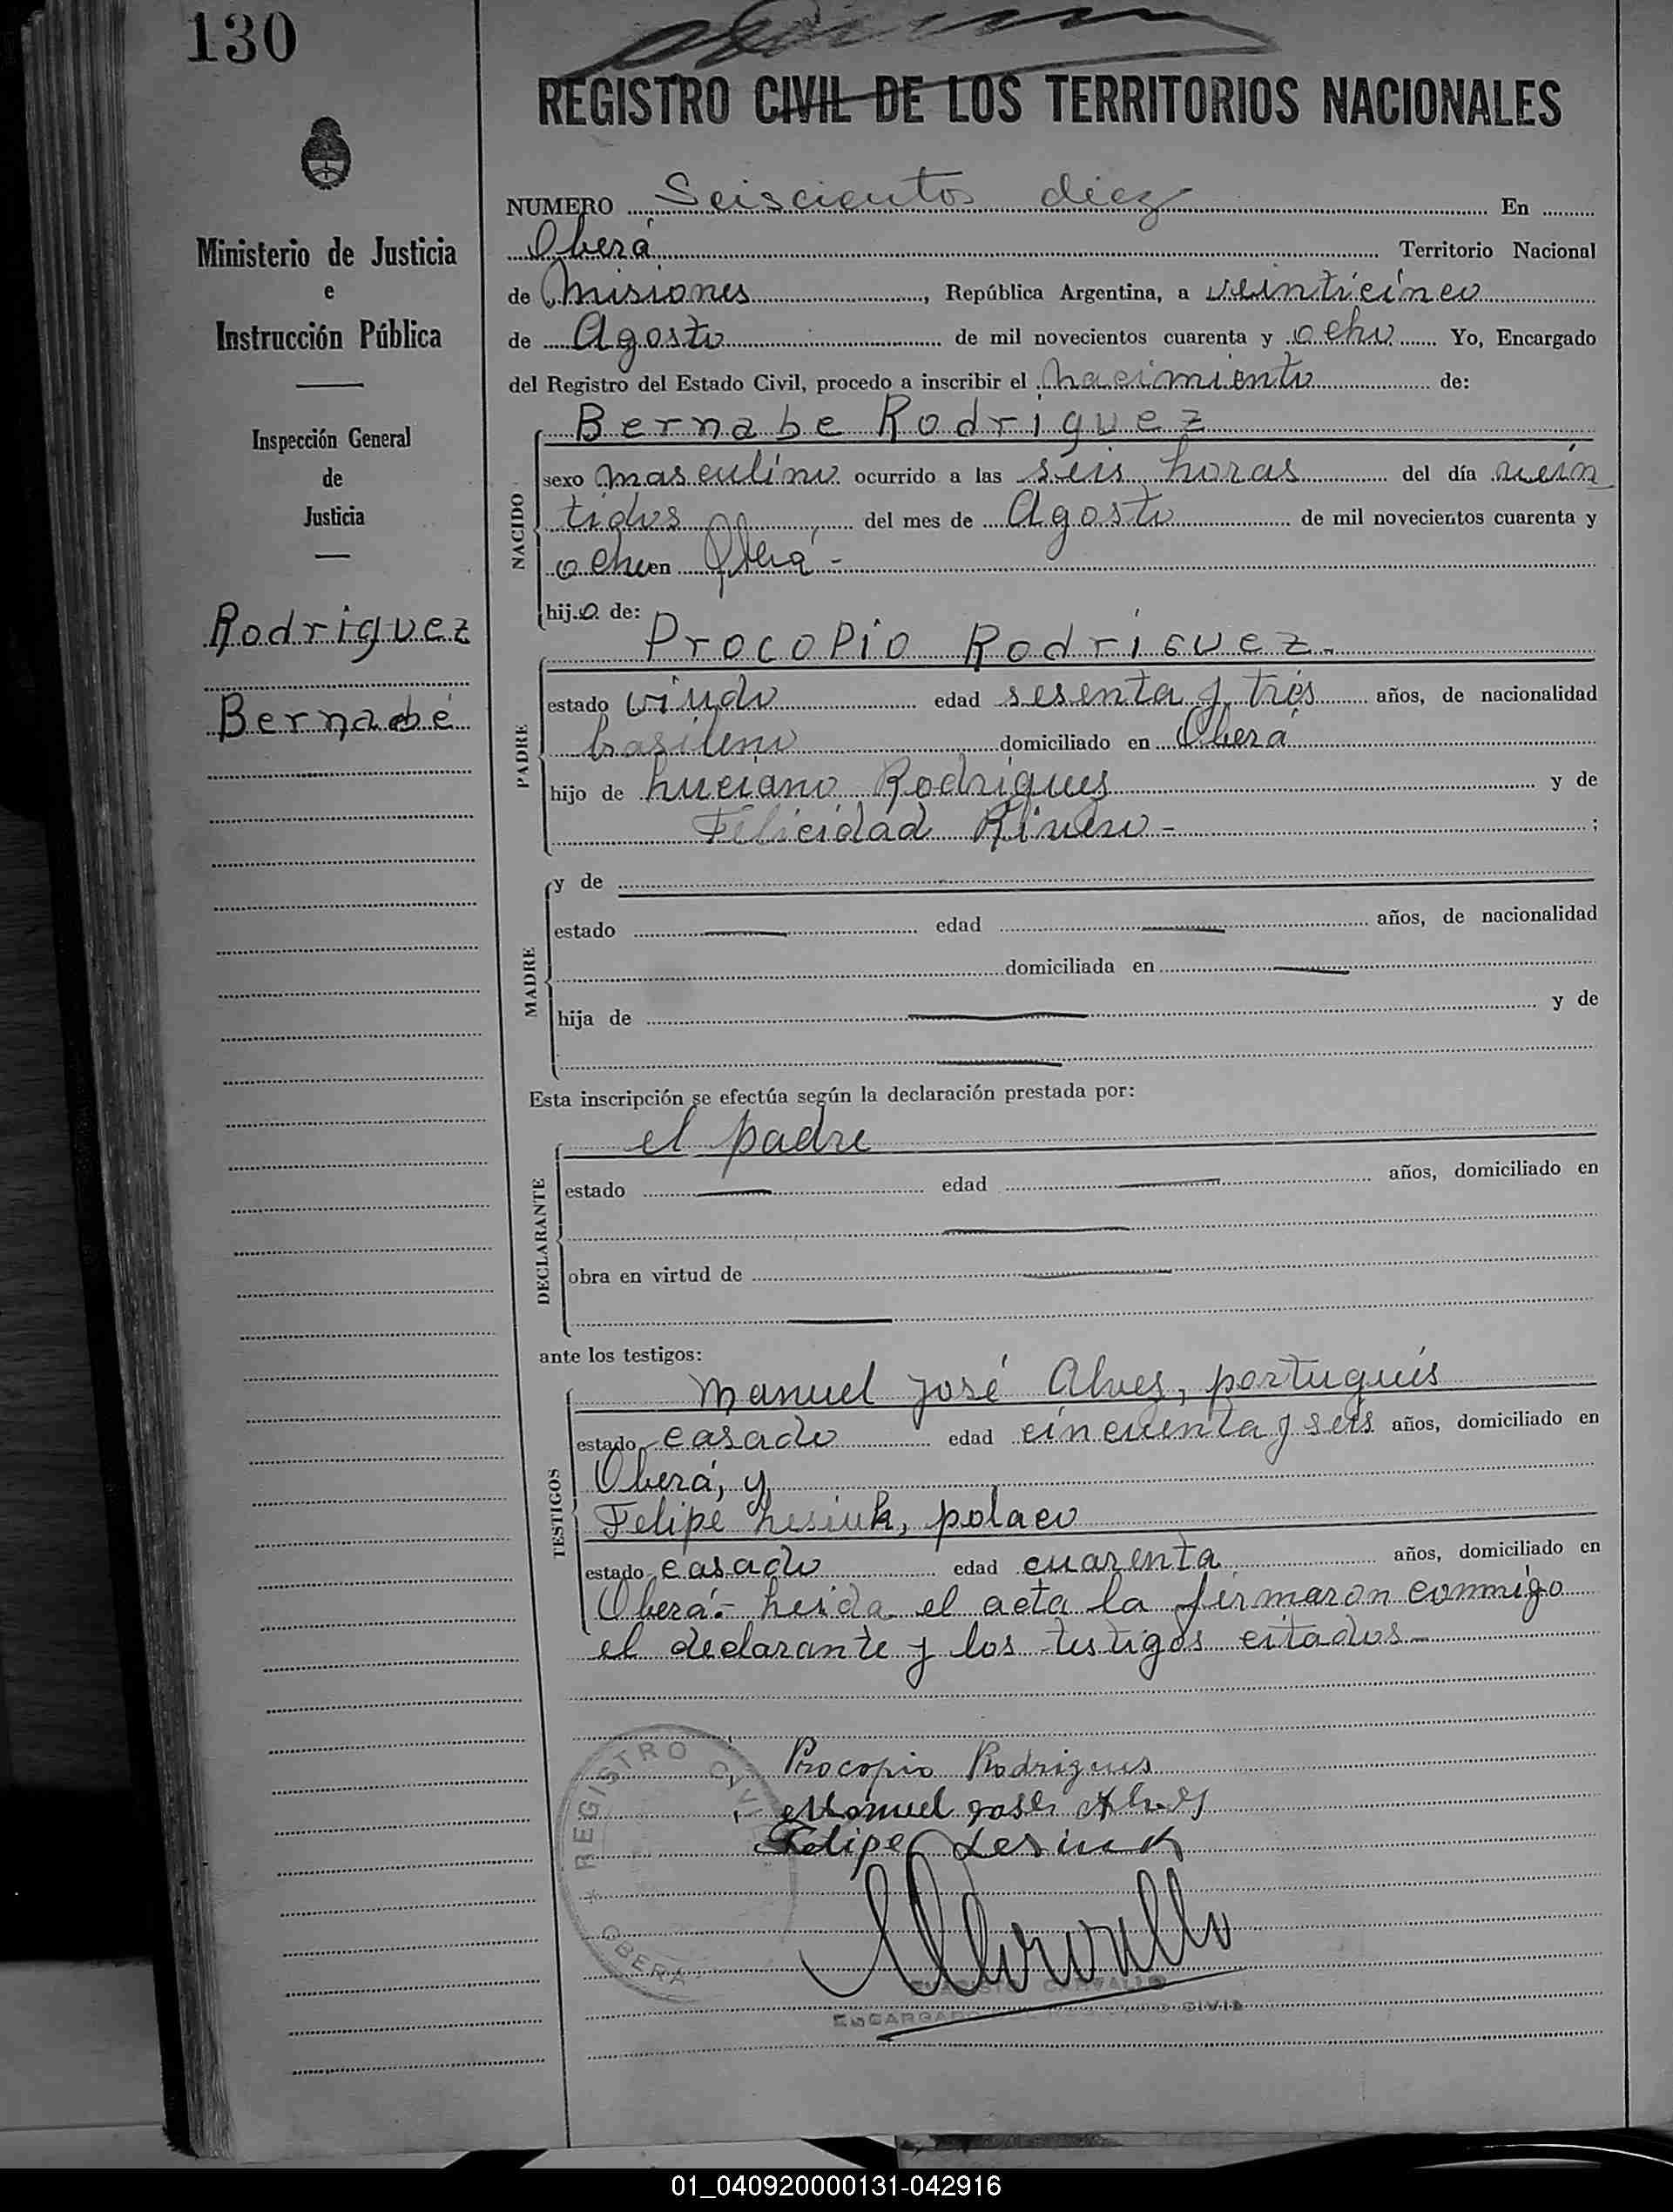 130
REGISTRO CIVIL DE LOS TERRITORIOS NACIONALES
Ministerio de Justicia
e
Instrucción Pública
Inspección General
de
Justicia
Rodriguez
Bernabé
NUMERO Seiscientos diez En
Oberá Territorio Nacional
de Misiones, República Argentina, a veinticinco
de Agosto de mil novecientos cuarenta y ocho Yo, Encargado
del Registro del Estado Civil, procedo a inscribir el nacimiento de:
NACIDO
Bernabe Rodriguez
sexo masculino ocurrido a las seis horas del día vein
tidos del mes de Agosto de mil novecientos cuarenta y
ocho en Oberá -
hijo de:
PADRE
Procopio Rodríguez.
estado viudo edad sesenta y tres años, de nacionalidad
brasileno domiciliado en Oberá
hijo de Luciano Rodrigues y de
Felicidad -;
MADRE
y de
estado edad años, de nacionalidad
domiciliada en
hija de y de
Esta inscripción se efectúa según la declaración prestada por:
DECLARANTE
el padre
estado edad años, domiciliado en
obra en virtud de
ante los testigos:
TESTIGOS
Manuel José Alves, portugués
estado casado edad cincuenta y seis años, domiciliado en
Oberá, y
Felipe Lesiuk, polaco
estado casado edad cuarenta años, domiciliado en
Oberá.- Leida el acta la firmaron conmigo
el declarante y los testigos citados-
Procopio Rodrigues
Manuel José Alves
Felipe Lesiuk
REGISTRO CIVIL
* OBERA
CARVALLO
ENCARGADO REGISTRO CIVIL
01_040920000131-042916